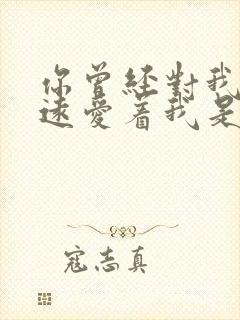 你曾經對我
遠愛着我是
寇志真